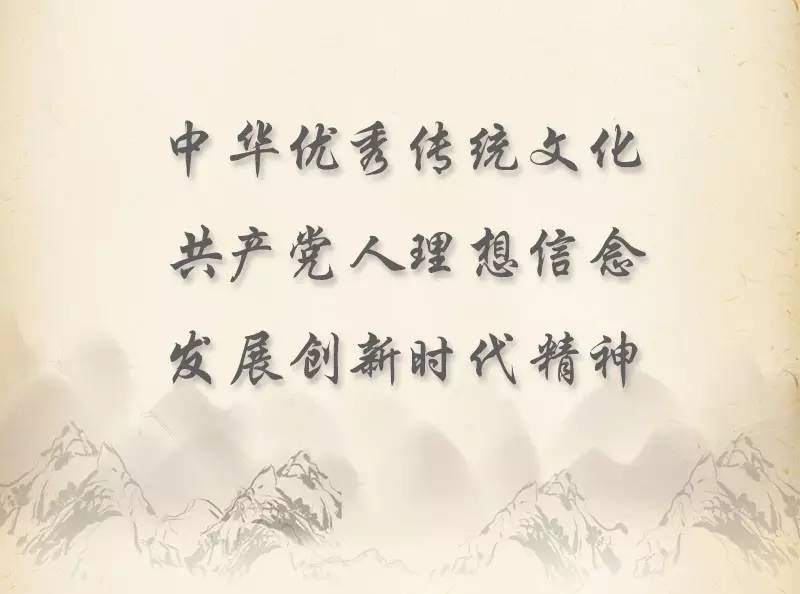 中华优秀传统文化
共产党人理想信念
发展创新时代精神